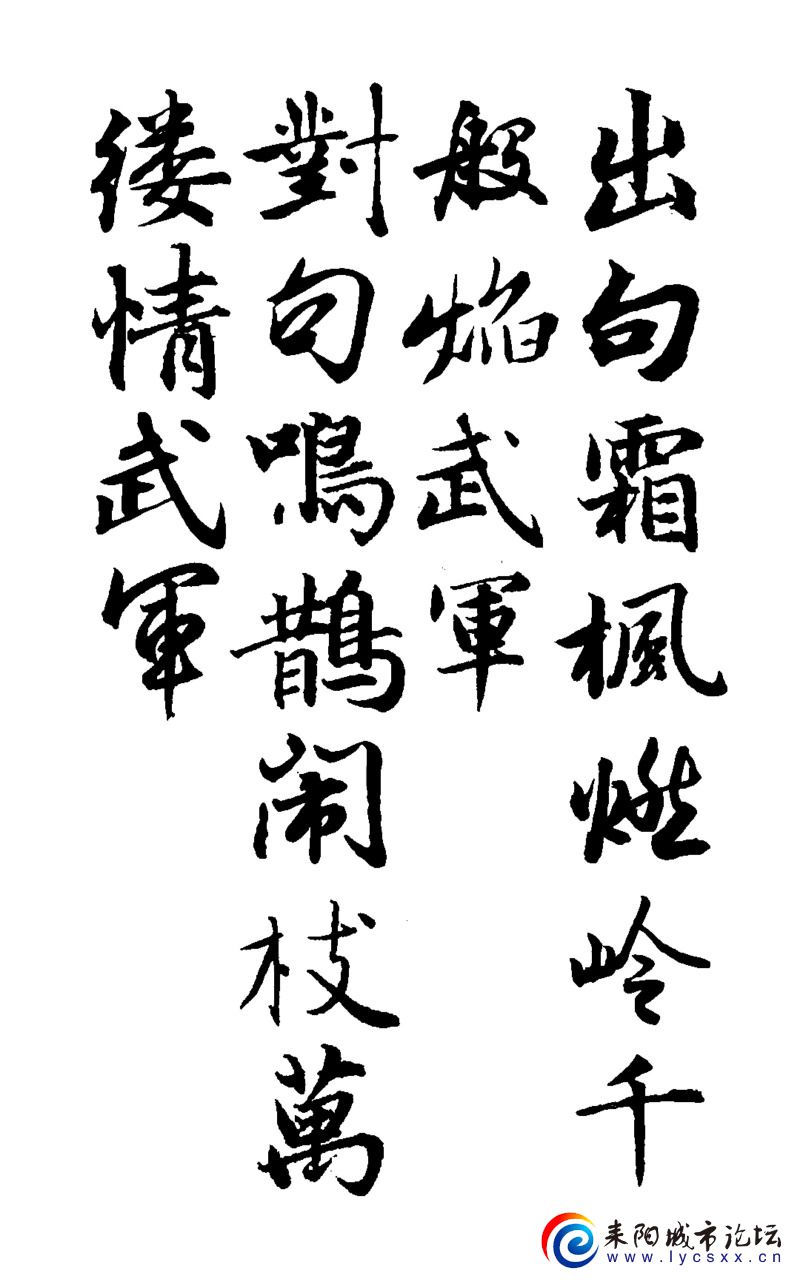 出句霜楓燃岭千
般焰武軍
對句鳴鵲闹枝萬
缕情武軍
耒阳城市论坛
www.lycsxx.cn